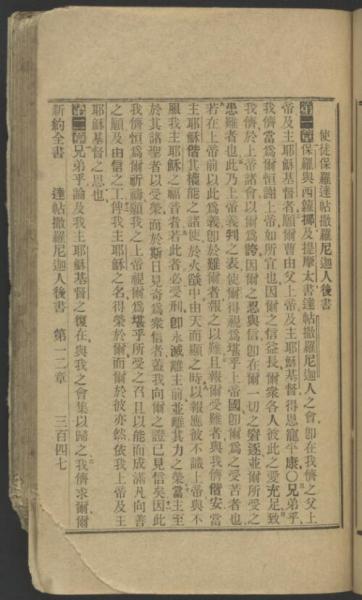 使徒保羅達帖撒羅尼迦人後書
第一章保羅與西鐳掷及提摩太書達帖撒羅尼迦人之會卽在我儕之父上
帝及主耶穌基督者願爾曹由父上帝及主耶穌基督得恩寵平康〇兄弟乎
我儕當爲爾恒謝上帝如所宜也因爾之信益長爾衆各人彼此之愛充足致
我儕於上帝諸會以爾爲誇因爾之忍與信卽在爾一切之窘逐並爾所受之
患難者也此乃上帝義判之表使爾得視爲堪乎上帝國卽爾爲之受苦者也
若在上帝前以此爲義卽於難爾者報之以難且報爾受難者與我儕偕安當
主耶穌偕其權能之諸使於火燄中由天而顯之時以報應彼不識上帝與不
風我主耶穌之福音者若此者必受刑卽永滅離主前並離其力之榮當主至
於其諸聖者以受榮而於斯日見奇爲衆信者蓋我向爾之證已見信矣因此
我儕恒爲爾祈禱願我之上帝視爾爲堪乎所受之召且以能而成滿凡向善
之願及由信之工俾我主耶穌之名得榮於爾而爾於彼亦然依我上帝及主
耶穌基督之恩也
第二章兄弟乎論及我主耶穌基督之復在與我之會集以歸之我儕求爾爾
新約全書 達帖撒羅尼迦人後書 第一二章 三百四七